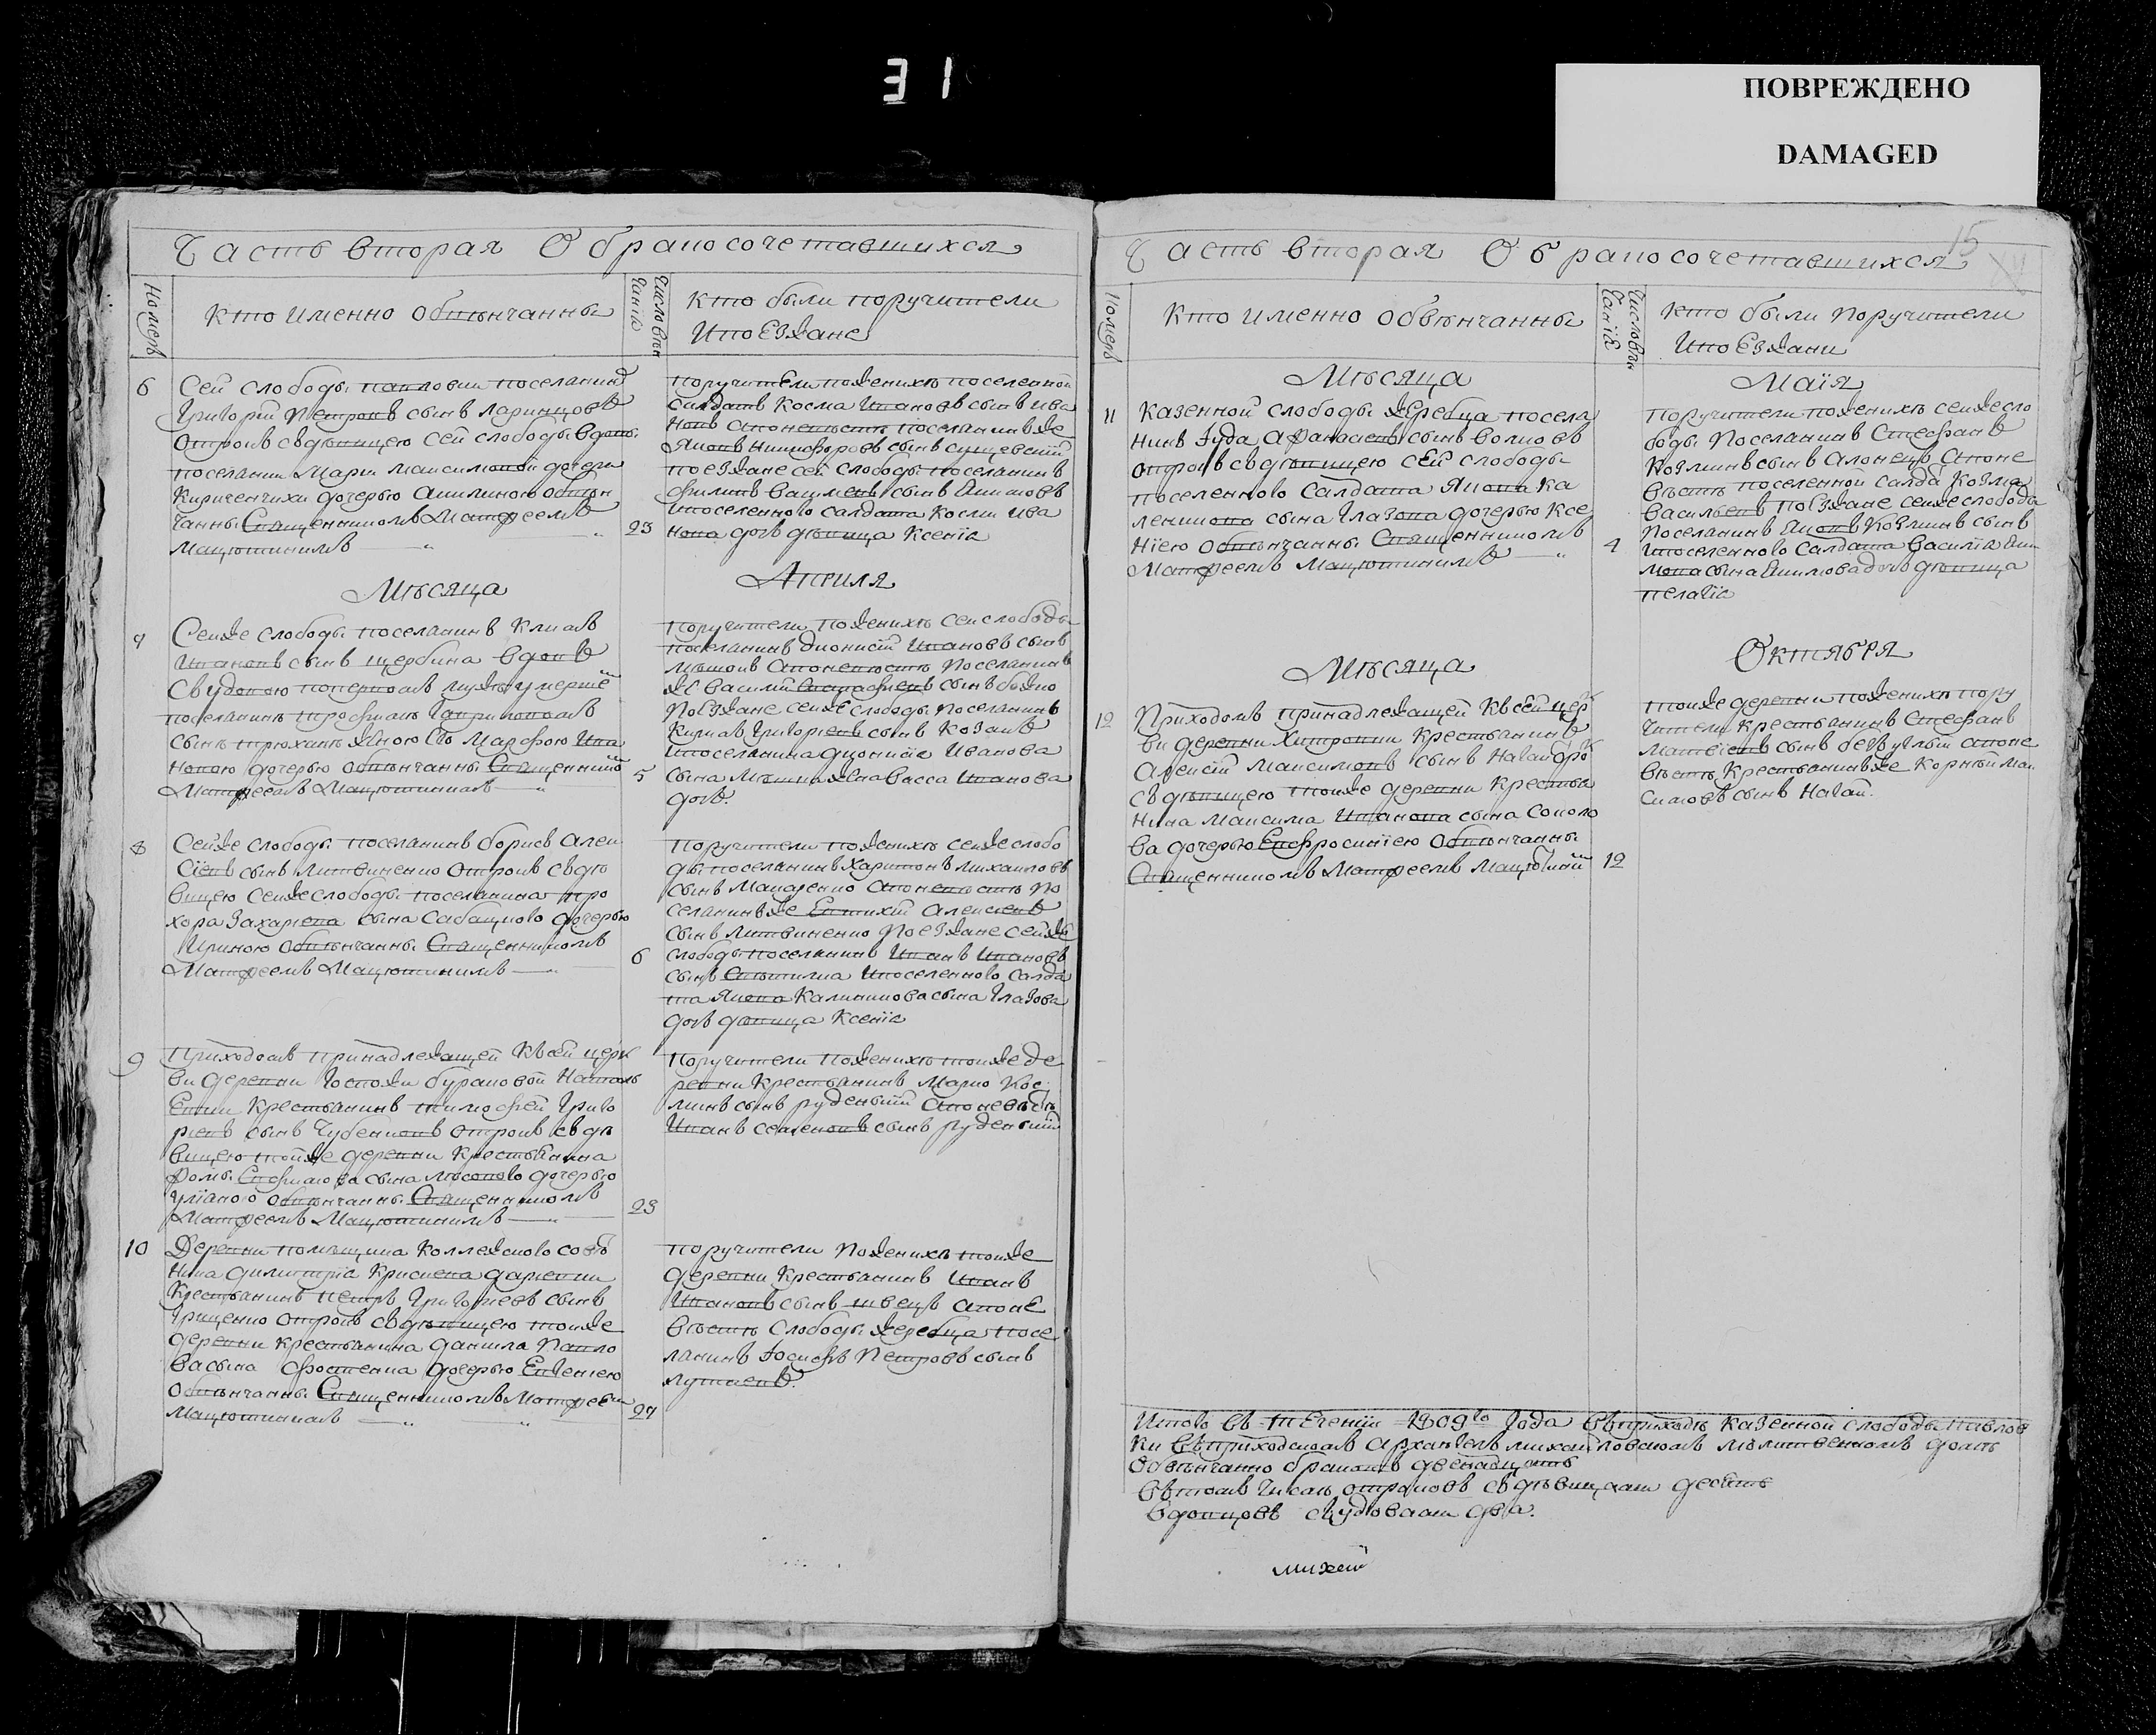 31
ПОВРЕЖДЕНО
DAMAGED
15
Часть вторая О бракосочетавшихся
Номеръ
Кто именно обвѣнчанны
Число вѣн
чанія
Кто были поручители
и поезжане
6
Сей слободы павловки поселанинъ
Григорій Петровъ сынъ Ларинцовъ
отрокъ съ дѣвицею сей слободы вдовы
поселанки Маріи Максимовой дочери
Кириченчихи дочерью Акилиною обвѣн
чанны Священникомъ Матфеемъ
Мацютинимъ
23
поручители по женихѣ поселенной
салдатъ Косма Ивановъ сынъ Ива
новъ а по невѣстѣ поселанинъ же
Яковъ Никифоровъ сынъ сущевскій
поезжане сей слободы поселанинъ
Филипъ сынъ Акимовъ
и поселенного салдата Косми Ива
нова дочь дѣвица Ксенія
Мѣсяца
Априля
7
Сей же слободы поселанинъ Климъ
Ивановъ сынъ щербина вдовъ
съ удовою поперкомъ мужу умерше
поселанинѣ Трофимѣ Гавриловомъ
сынѣ женою Марфою Ива
новою дочерью обвѣнчанны Священник
Матфеемъ Мацютинимъ
5
поручители по женихѣ сей слободы
поселанинъ дионисій Ивановъ сынъ
а по невѣстѣ поселанинъ
же Василій Евстафіевъ сынъ
поезжане сей же слободы поселанинъ
Климъ Григоріевъ сынъ Козакъ
и поселанина дионисія Иванова
сына жена Васса Иванова
дочь.
8
Сей же слободы поселанинъ борисъ Алек
сіевъ сынъ Литвиненко отрокъ съ дѣ
вицею сей же слободы поселанина про
хора Захаріева сына Сабацкого дочерью
Ириною обвѣнчанны Священникомъ
Матфеемъ Мацютинимъ
6
Поручители по женихѣ сей же слобо
ды поселанинъ Харитонъ Михаиловъ
сынъ Макаренко а по невѣстѣ по
селанинъ же Евтихій Алексіевъ
сынъ Литвиненко поезжане сей же
слободы поселанинъ Иванъ Ивановъ
сынъ и поселенного салда
та Якова Калиникова сына Глазова
дочь дѣвица Ксенія
9
Приходомъ принадлежащей къ сей церк
ви деревни Госпожи бураковой Наталь
евки Крестьянинъ тимофей Григо
ріевъ сынъ Чубенковъ отрокъ съ дѣ
вицею той же деревни Крестьянина
фомы Евфимова сына дочерью
Уліаною обвѣнчанны Священникомъ
Матфеемъ Мацютинимъ
23
Поручители по женихѣ той же де
ревни Крестьянинъ Марко Кос
минъ сынъ руденкій а по невѣстѣ
Иванъ семеновъ сынъ руденкій
10
Деревни помѣщика Коллежского совѣт
ника димитрія
Крестьянинъ петръ Григоріевъ сынъ
Грищенко отрокъ съ дѣвицею той же
деревни крестьянина данила Павло
ва сына дочерью Евгеніею
обвѣнчанны Священникомъ Матфеем
Мацютинимъ
27
поручители по женихѣ той же
деревни Крестьянинъ Иванъ
Ивановъ сынъ швецъ а по не
вѣстѣ слободы жеребца посе
ланинъ Іосифъ Петровъ сынъ
Часть вторая О бракосочетавшихся
Номеръ
Кто именно обвѣнчанны
Число вѣн
чанія
Кто были Поручители
и поезжани
Мѣсяца
Маія
11
Казенной слободы жеребца посела
нинъ Іуда Афанасіевъ сынъ волковъ
отрокъ съ дѣвицею сей слободы
поселенного салдата Якова Ка
леникова сына Глазова дочерью Ксе
ніею обвѣнчанны Священникомъ
Матфеемъ Мацютинимъ
4
Поручители по женихѣ сей же сло
боды поселанинъ Стефанъ
Козминъ сынъ а по не
вѣстѣ поселенной салда Козма
Васильевъ поезжане сей же слободы
поселанинъ Яковъ Козминъ сынъ
и поселенного Салдата Василія Аки
мова сына Акимова дочь дѣвица
пелагія
Мѣсяца
Октября
12
Приходомъ принадлежащей къ сей цер
ви деревни Хитровки Крестьянинъ
Алексій Максимовъ сынъ Нагай отро
съ дѣвицею той же деревни Крестья
нина Максима Иванова сына Соколо
ва дочерью Евфросиніею обвѣнчанны
Священникомъ Матфеемъ Мацютиним
12
Той же деревни по женихѣ пору
чители Крестьянинъ Стефанъ
Матвіевъ сынъ безуглый а по не
вѣстѣ Крестьянинъ же Корнѣй Мак
симовъ сынъ Нагай.
Итого въ течении 1809го года въ приходѣ казенной слободы павлов
ки въ приходскомъ архангелъ михайловскомъ молитвенномъ домѣ
обвѣнчанно браковъ двенадцать
въ томъ числѣ отроковъ съ дѣвицами десять
вдовцовъ съ удовами два.